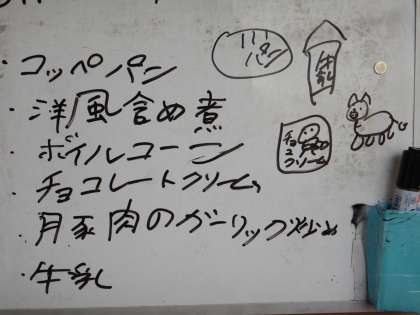 ・コッペパン
・洋風含め煮
・ボイルコーン
・チョコレートクリーム
・月豕肉のガーリック炒め
・牛乳
パン
牛乳
チョコ
クリーム